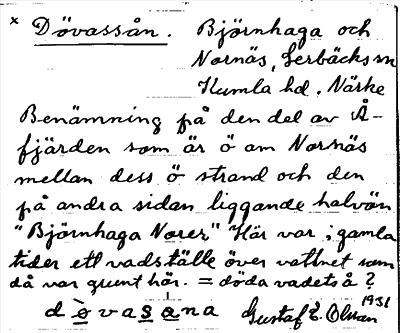 x Dövassån. Björnhaga och
Nornäs, Lerbäcks sn
Kumla hd. Närke
Benämning på den del av Å-
fjärden som är ö om Nornäs
mellan dess ö strand och den
på andra sidan liggande halvön
"Björnhaga Norer" Här var i gamla
tider ett vadställe över vattnet som
då var grunt här. = döda vadets å?
dövasana Gustaf E. Olman 1931